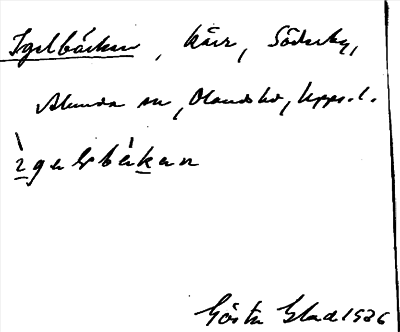 Igelbäcken, kärr, Söderby,
Alunda sn, Olands hd, Upps. l.
ìgəlbä̀kən
Gösta Glad 1926